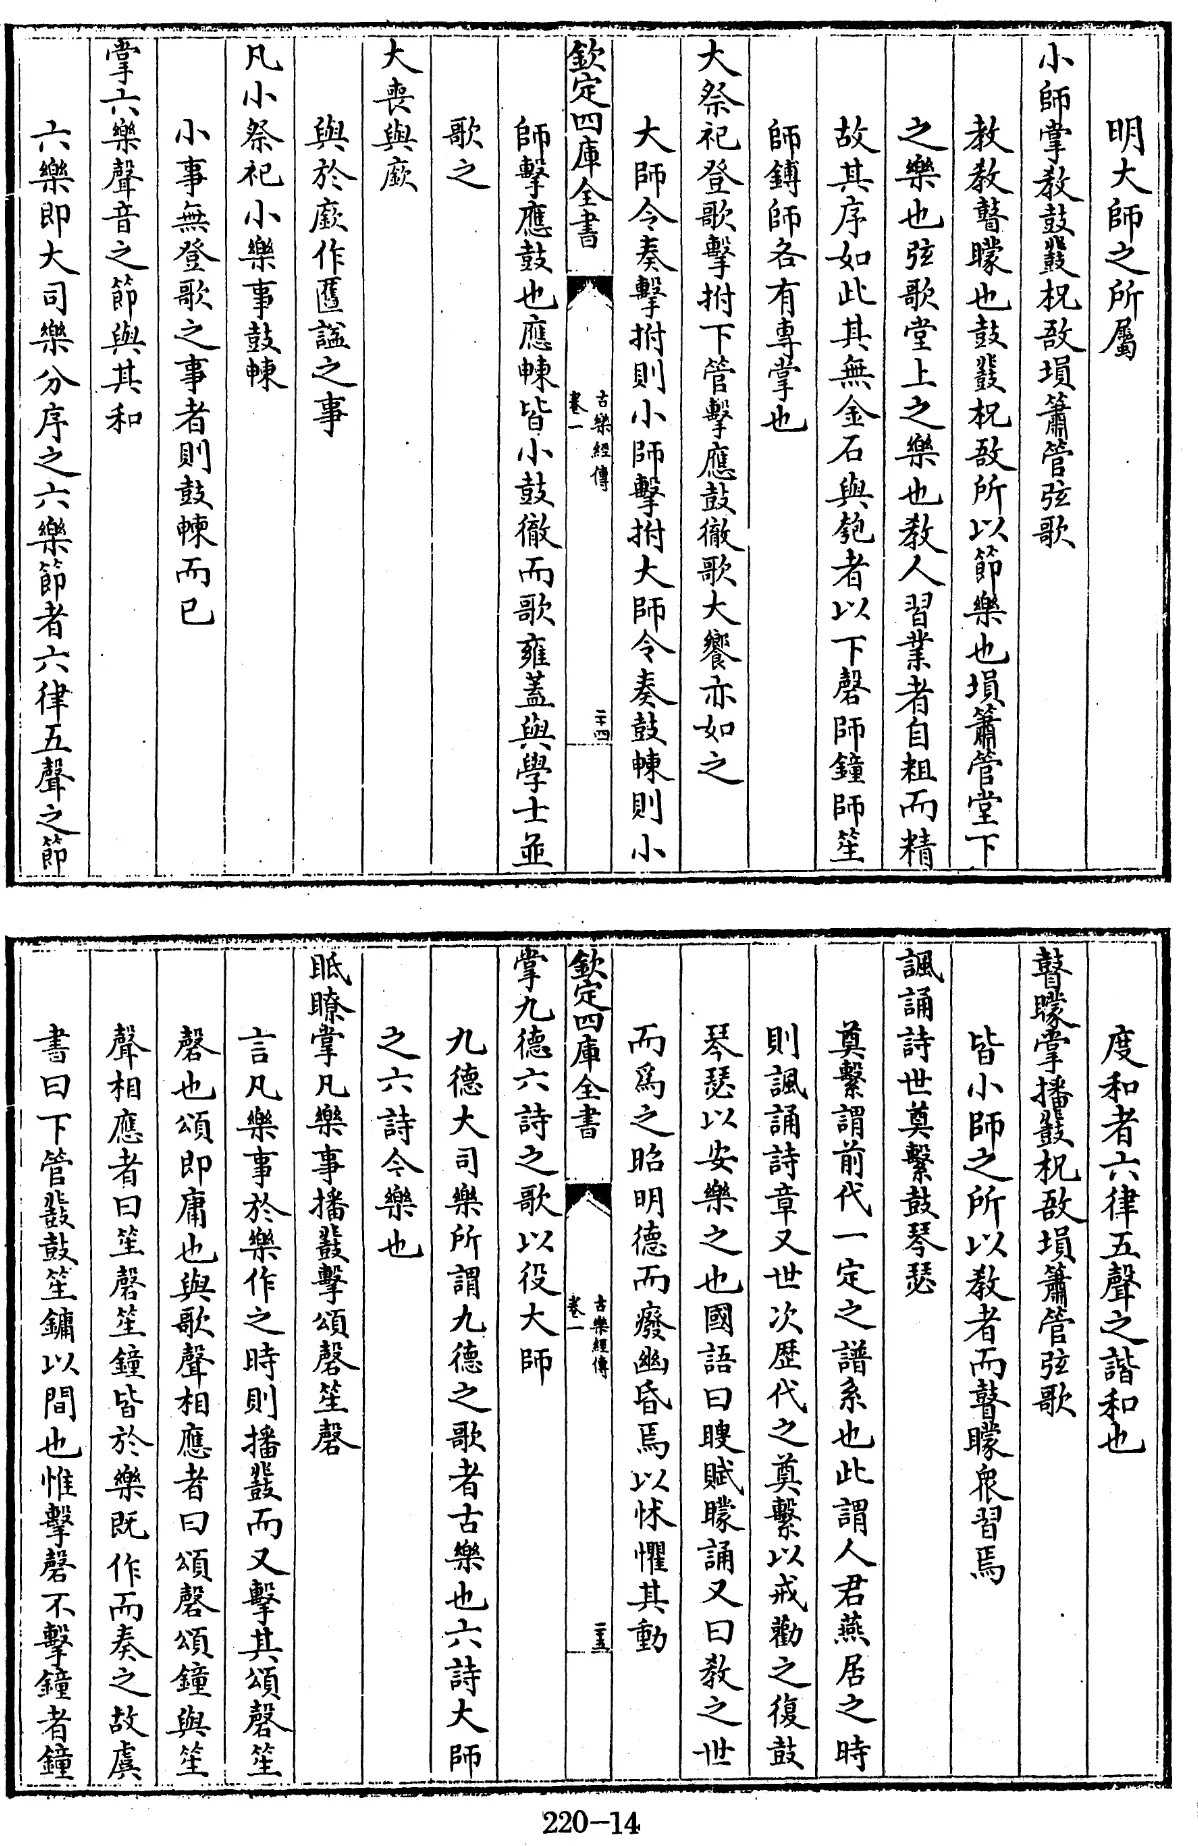 明大師之所屬
小師掌敎鼓鼗柷敔塤簫管弦歌
敎敎瞽矇也鼓鼗柷敔所以節樂也塤簫管堂下
之樂也弦歌堂上之樂也敎人習業者自粗而精
故其序如此其無金石與匏者以下磬師鐘師笙
師鎛師各有專掌也
大祭祀登歌擊拊下管擊應鼓徹歌大饗亦如之
大師令奏擊拊則小師擊拊大師令奏鼓朄則小
欽定四庫全書
古樂經傳
卷一
二十四
師擊應鼓也應朄皆小鼓徹而歌雍蓋與學士並
歌之
大喪與廞
與於廞作匶諡之事
凡小祭祀小樂事鼓朄
小事無登歌之事者則鼓朄而已
掌六樂聲音之節與其和
六樂即大司樂分序之六樂節者六律五聲之節
度和者六律五聲之諧和也
瞽矇掌播鼗柷敔塤簫管弦歌
皆小師之所以敎者而瞽矇眾習焉
諷誦詩世奠繫鼓琴瑟
奠繫謂前代一定之譜系也此謂人君燕居之時
則諷誦詩章又世次歷代之奠繫以戒勸之復鼓
琴瑟以安樂之也國語曰瞍賦矇誦又曰敎之世
而為之昭明德而癈幽昏焉以怵懼其動
欽定四庫全書
古樂經傳
卷一
二十五
掌九德六詩之歌以役大師
九德大司樂所謂九德之歌者古樂也六詩大師
之六詩今樂也
眡瞭掌凡樂事播鼗擊頌磬笙磬
言凡樂事於樂作之時則播鼗而又擊其頌磬笙
磬也頌即庸也與歌聲相應者曰頌磬頌鐘與笙
聲相應者曰笙磬笙鐘皆於樂既作而奏之故虞
書曰下管鼗鼓笙鏞以間也惟擊磬不擊鐘者鐘
220-14